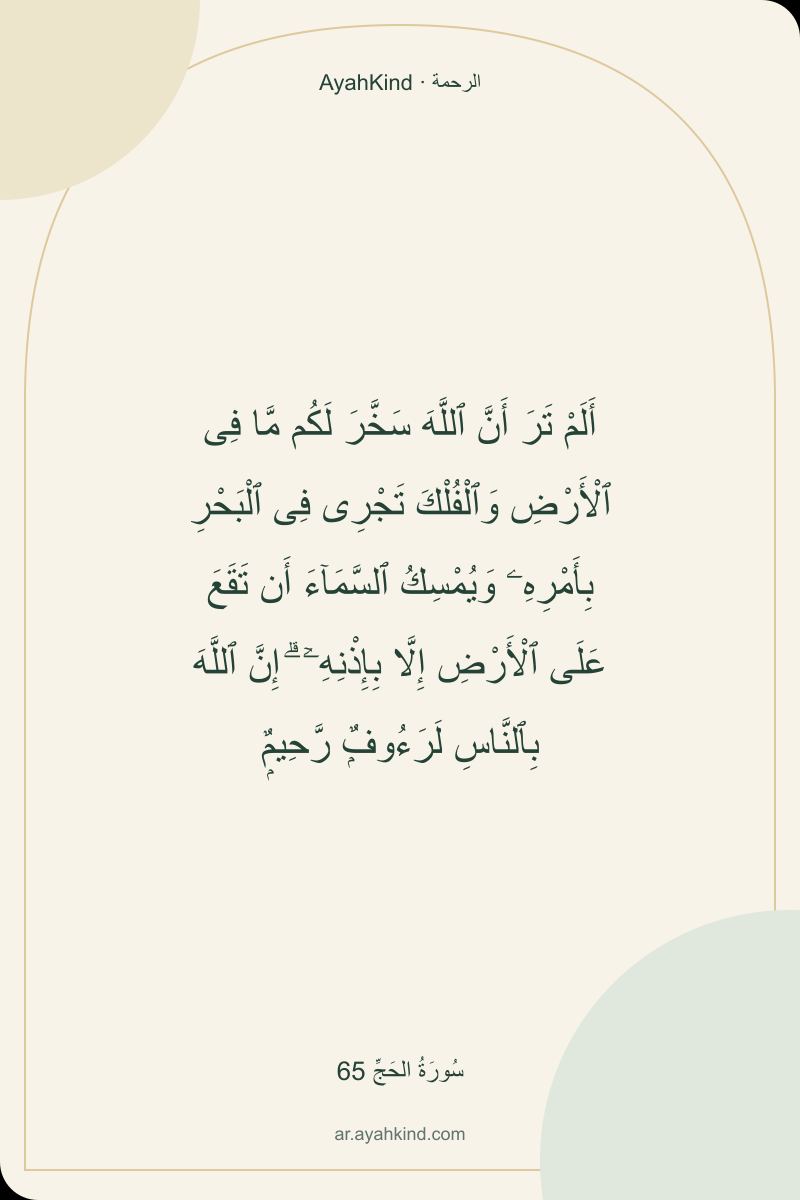 AyahKind · الرحمة
أَلَمْ تَرَ أَنَّ ٱللَّهَ سَخَّرَ لَكُم مَّا فِى
ٱلْأَرْضِ وَٱلْفُلْكَ تَجْرِى فِى ٱلْبَحْرِ
بِأَمْرِهِۦ وَيُمْسِكُ ٱلسَّمَآءَ أَن تَقَعَ
عَلَى ٱلْأَرْضِ إِلَّا بِإِذْنِهِۦٓ ۗ إِنَّ ٱللَّهَ
بِٱلنَّاسِ لَرَءُوفٌۭ رَّحِيمٌۭ
سُورَةُ الحَجِّ 65
ar.ayahkind.com